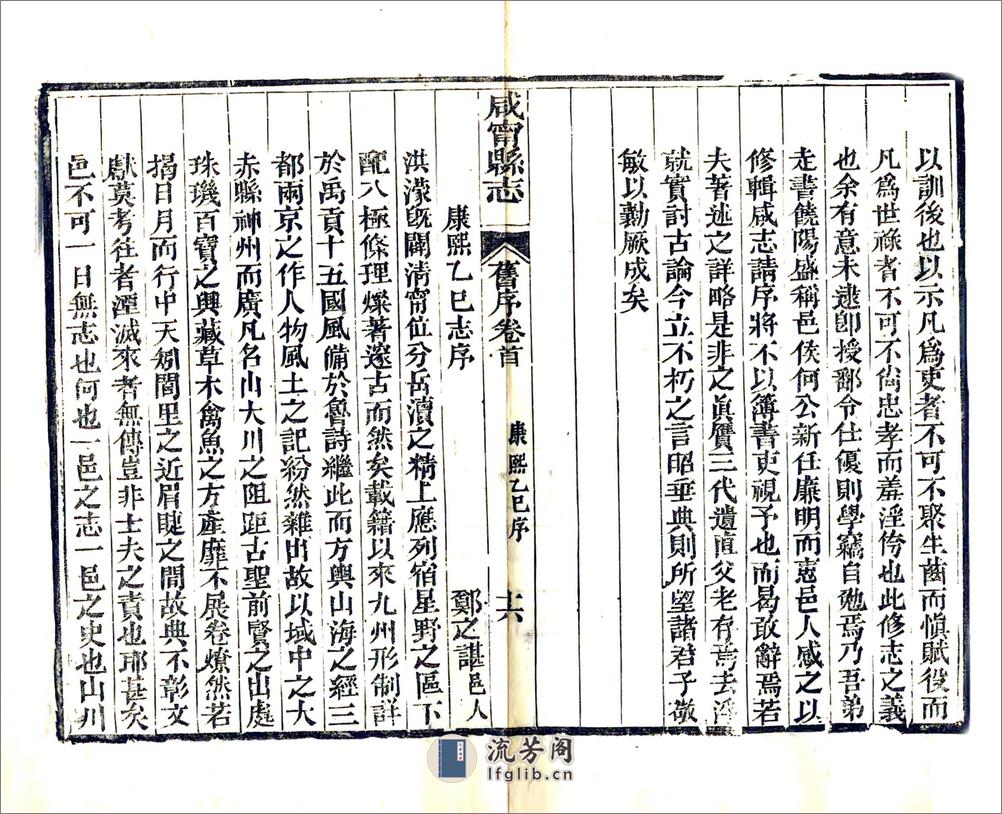 以訓後也以示凡爲吏者不可不聚生齒而愼賦役而
凡爲世祿者不可不尙忠孝而羞淫侉也此修志之義
也余有意未逮卽授鄱令仕優則學竊自勉焉乃吾弟
走書饒陽盛稱邑侯何公新任廉明而惠邑人感之以
修輯咸志請序將不以簿書吏視予也而曷敢辭焉若
夫著述之詳略是非之眞贋三代遺直父老有焉去浮
就實討古論今立不朽之言昭垂典則所望諸君子敬
敏以勷厥成矣
咸甯縣志
舊序卷首
康熙乙巳序
十六
康熙乙巳志序
鄭之諶邑人
洪濛旣闢淸甯位分岳瀆之精上應列宿星野之區下
配八極條理燦著邃古而然矣載籍以來九州形制詳
於禹貢十五國風備於魯詩繼此而方輿山海之經三
都兩京之作人物風土之記紛然雜出故以域中之大
赤縣神州而廣凡名山大川之阻距古聖前賢之出處
珠璣百寶之輿藏草木禽魚之方產靡不展卷燎然若
揭日月而行中天矧閭里之近眉睫之間故典不彰文
獻莫考往者湮滅來者無傳豈非士夫之責也耶甚矣
邑不可一日無志也何也一邑之志一邑之史也山川
流芳阁
lfglib.cn